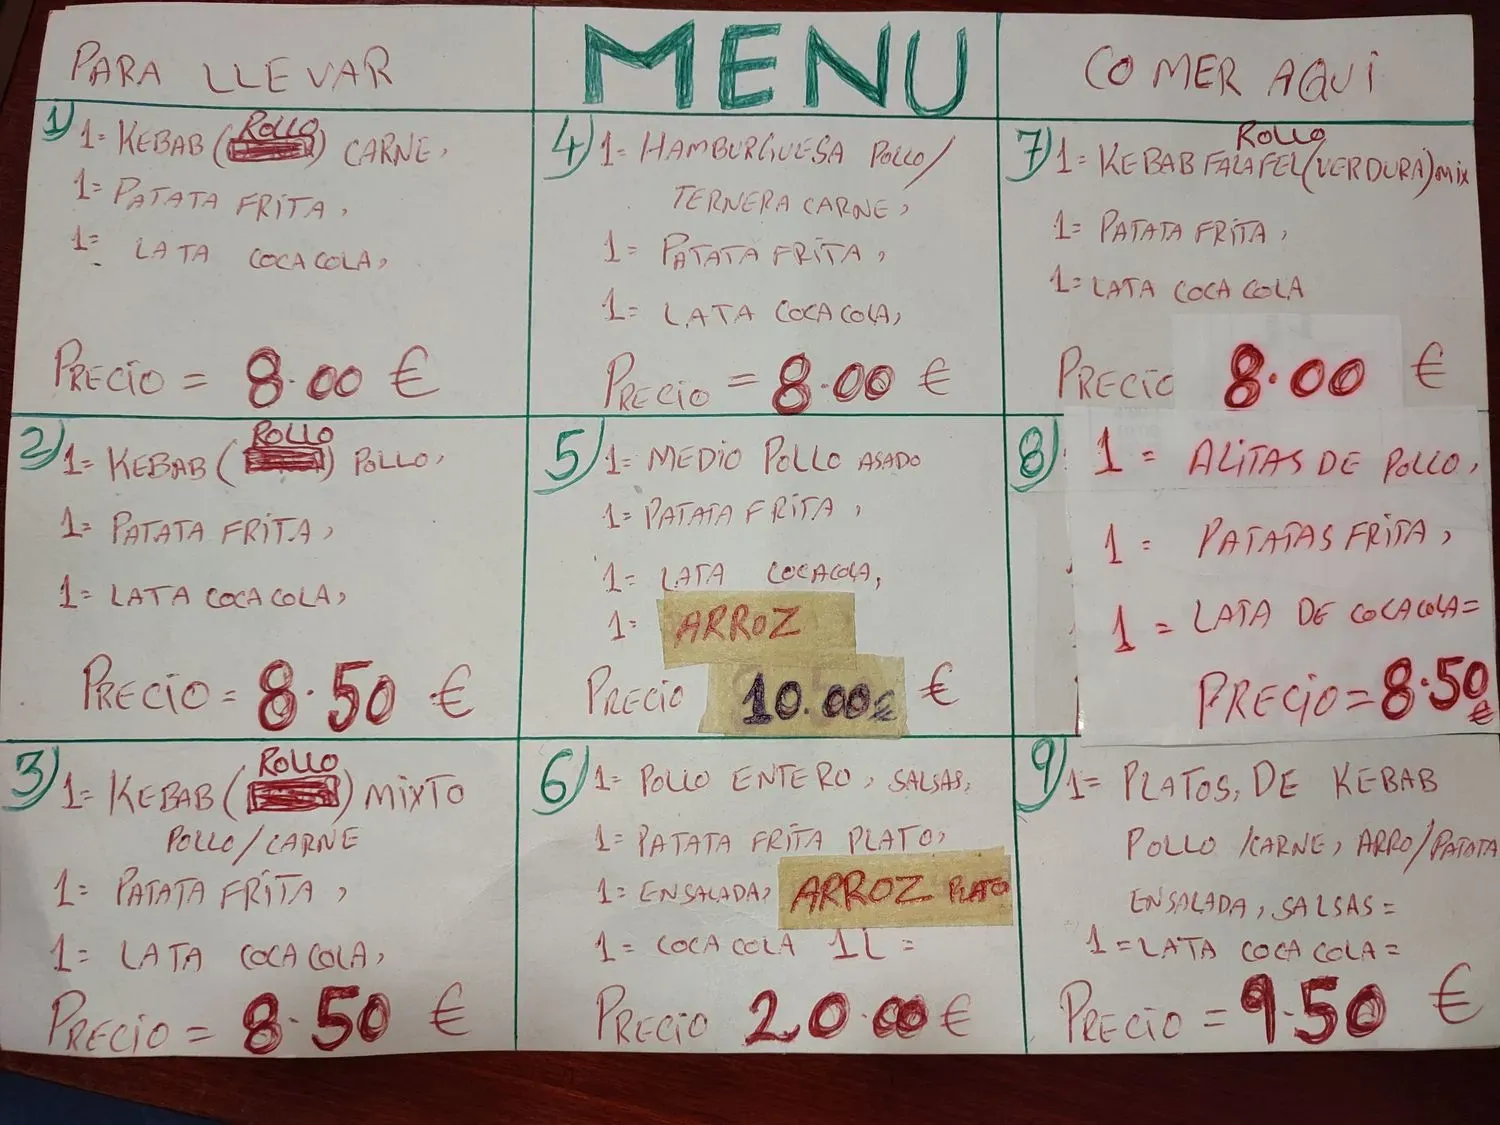 PARA LLEVAR
MENU
COMER AQUI
1) 1= KEBAB (ROLLO) CARNE,
1= PATATA FRITA,
1= LATA COCACOLA,
PRECIO = 8.00 €
2) 1= KEBAB (ROLLO) POLLO,
1= PATATA FRITA,
1= LATA COCACOLA,
PRECIO = 8.50 €
3) 1= KEBAB (ROLLO) MIXTO
POLLO/CARNE
1= PATATA FRITA,
1= LATA COCACOLA,
PRECIO = 8.50 €
4) 1= HAMBURGUESA POLLO/
TERNERA CARNE,
1= PATATA FRITA,
1= LATA COCACOLA,
PRECIO = 8.00 €
5) 1= MEDIO POLLO ASADO
1= PATATA FRITA,
1= LATA COCACOLA,
1= ARROZ
PRECIO 10.00€ €
6) 1= POLLO ENTERO, SALSAS,
1= PATATA FRITA PLATO,
1= ENSALADA, ARROZ PLATO
1= COCACOLA 1L =
PRECIO 20.00 €
7) 1= KEBAB ROLLO FALAFEL (VERDURA) MIX
1= PATATA FRITA,
1= LATA COCACOLA
PRECIO 8.00 €
8) 1= ALITAS DE POLLO,
1= PATATAS FRITA,
1= LATA DE COCACOLA=
PRECIO=8.50 €
9) 1= PLATOS, DE KEBAB
POLLO/CARNE, ARRO/PATATA
ENSALADA, SALSAS=
1=LATA COCACOLA=
PRECIO = 9.50 €